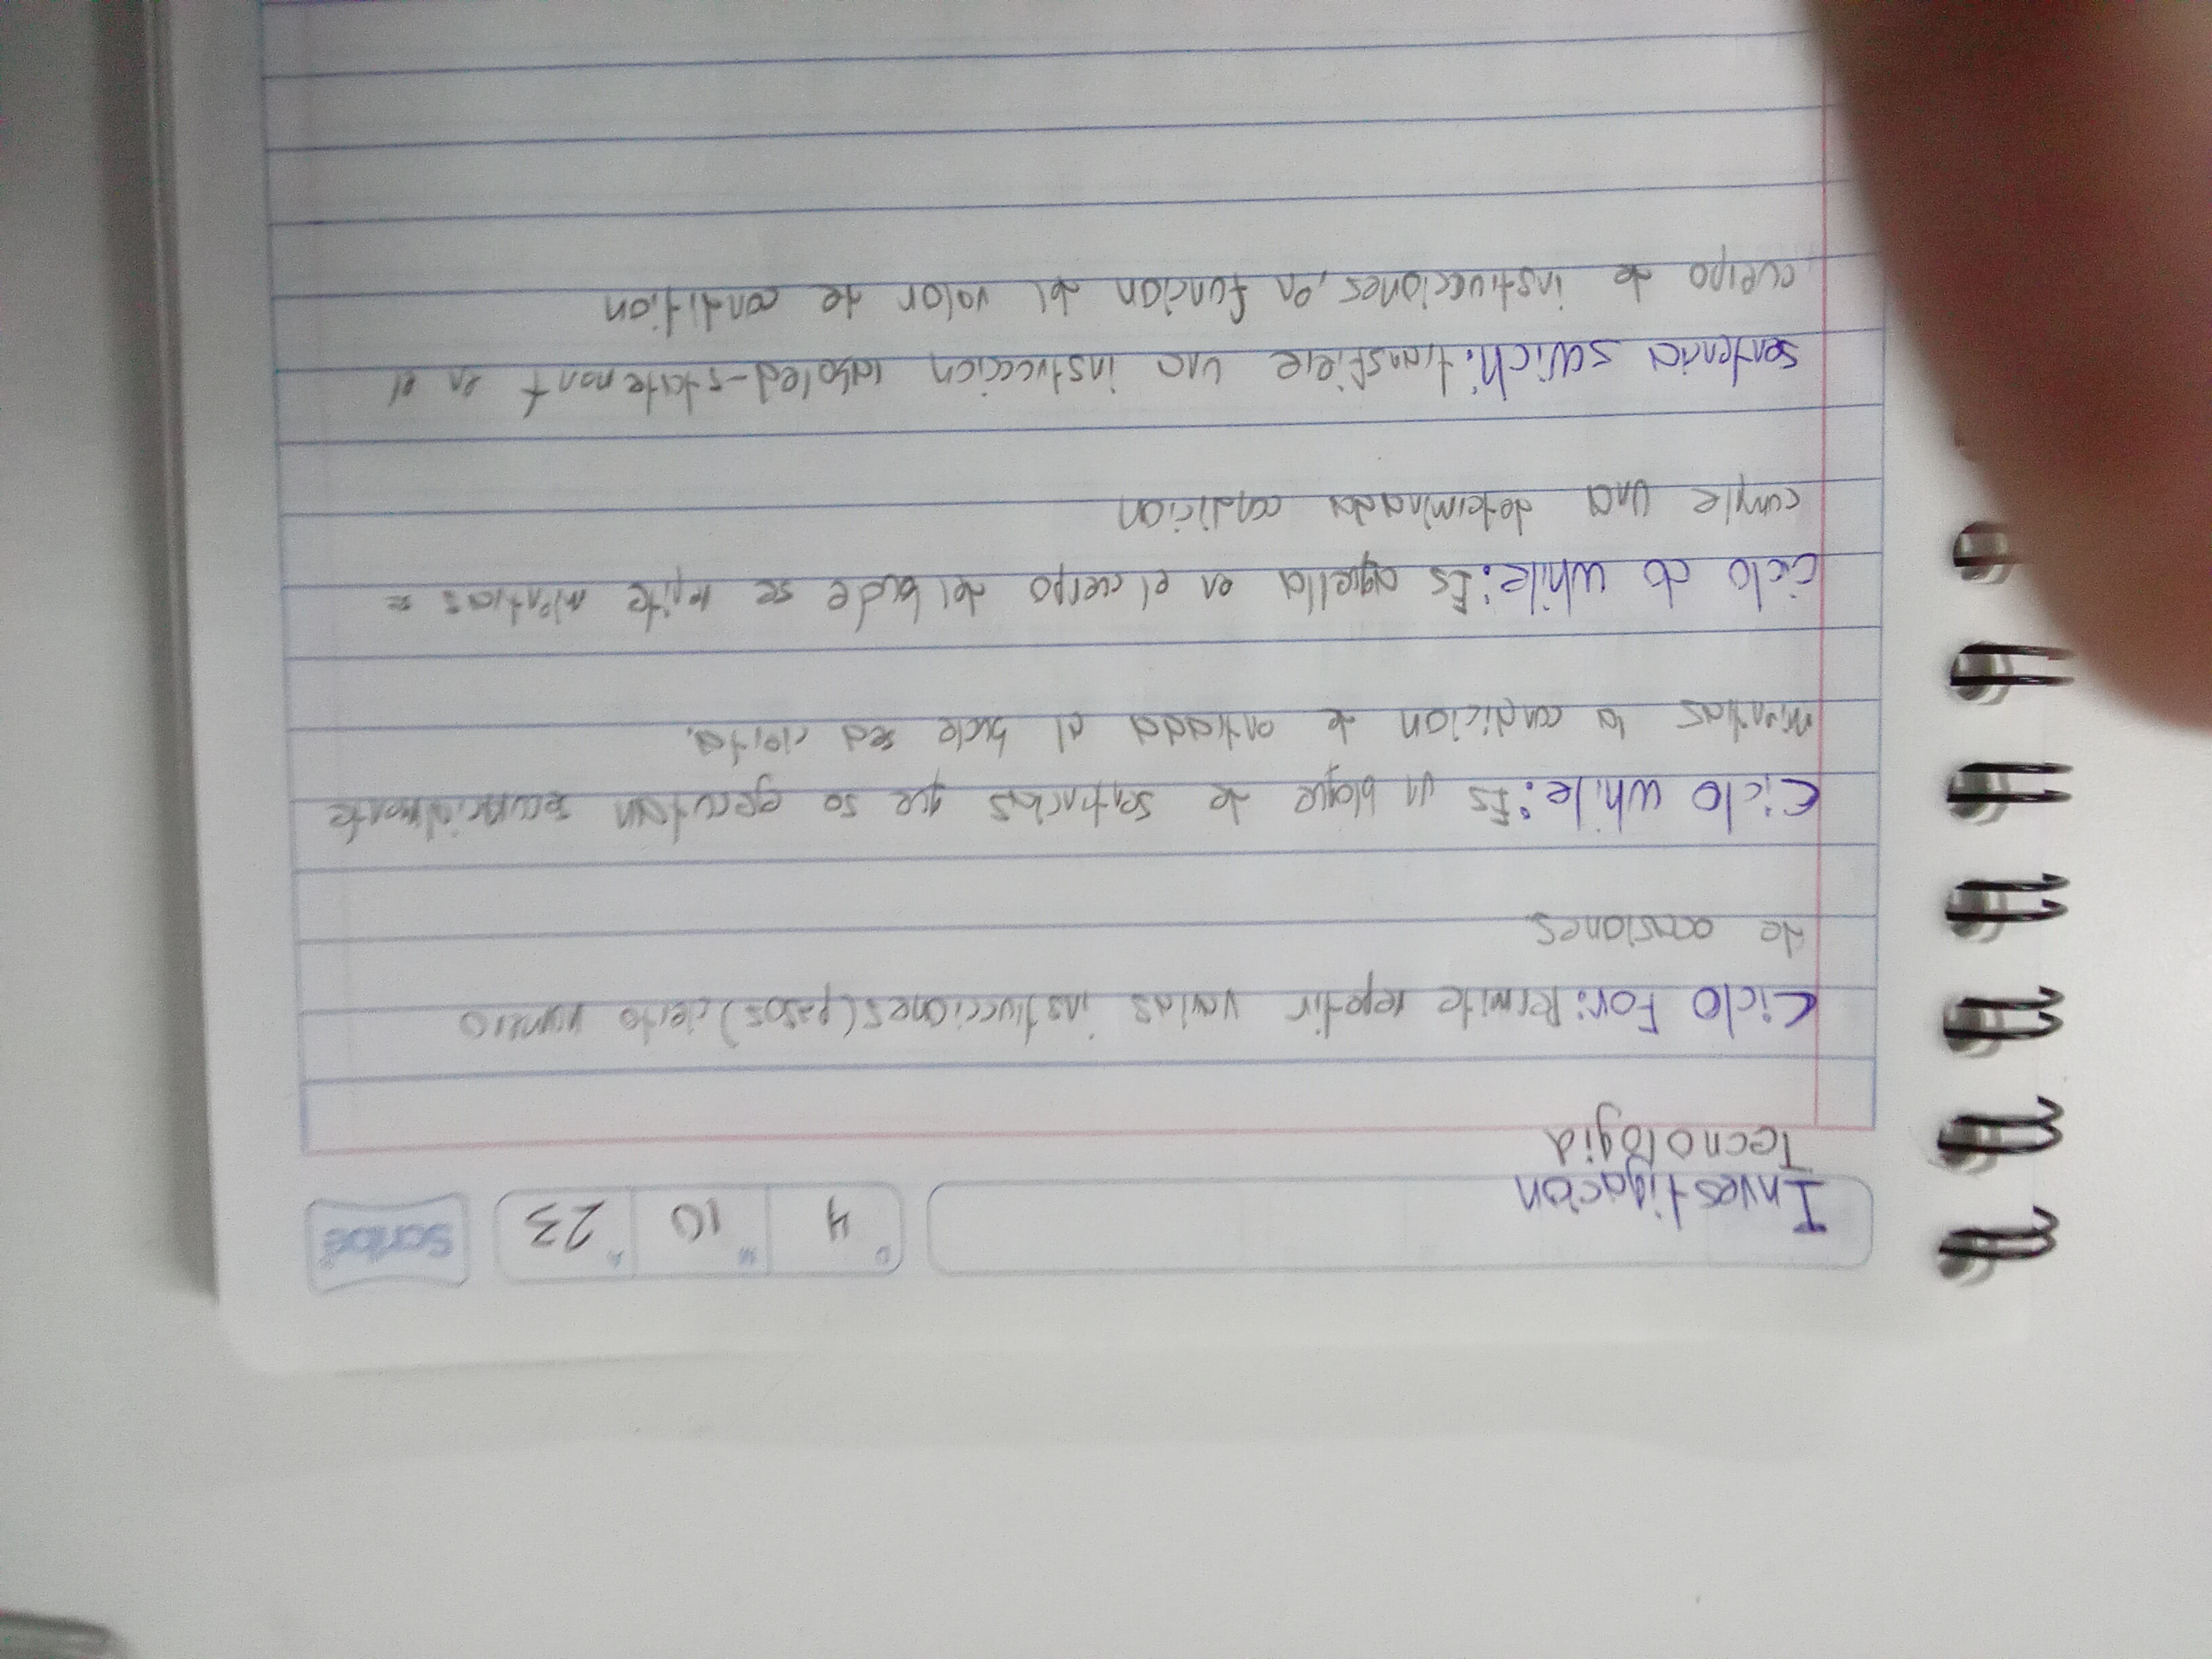 Investigacion
D 4 M 10 A 23
Scribe
Tecnologia
Ciclo For: Permite repetir varias instrucciones (pasos) cierto numero
de ocasiones
Ciclo while: Es un bloque de sentencias que se ejecutan secuencialmente
mientras la condicion de entrada al bucle sea cierta.
Ciclo do while: Es aquella en el cuerpo del bucle se repite mientras se
cumple una determinada condicion
sentencia swich: transfiere una instruccion labeled-statement en el
cuerpo de instrucciones, en funcion del valor de condition